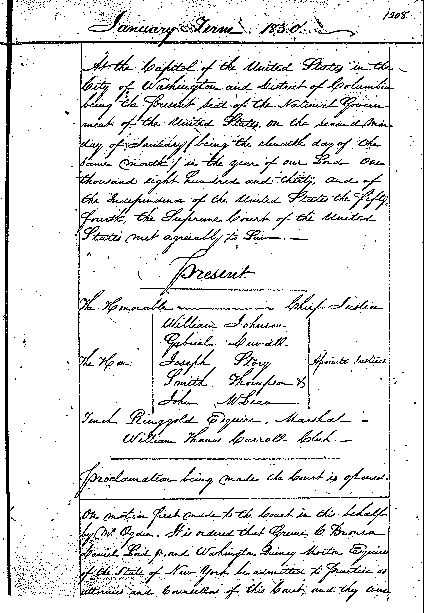 1208
January Term 1830.
At the Capitol of the United States in the
City of Washington and District of Columbia
being the present seat of the National Govern
ment of the United States, on the second Mon
day of January (being the eleventh day of the
same month) in the year of our Lord One
thousand eight hundred and thirty, and of
the Independence of the United States the fifty
fourth, the Supreme Court of the United
States met agreeably to Law. —
Present
The Honorable Chief Justice
William Johnson
Gabriel Duvall
The Hon. Joseph Story Associate Justices
Smith Thompson &
John McLean
Tench Ringgold Esquire, Marshal —
William Thomas Carroll Clerk. —
Proclamation being made the Court is opened.
On motion first made to the Court in this behalf
by Mr Ogden. It is ordered that Greene C Bronson
Daniel Lord Jr. and Washington Quincy Morton Esquires
of the State of New York be admitted to practice as
attornies and Counsellors of this Court, and they